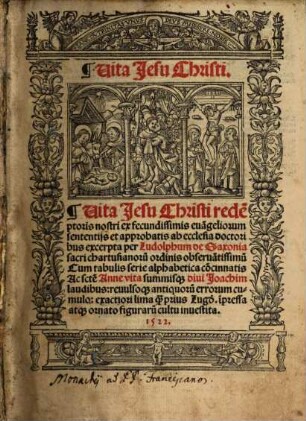 ¶ Vita Jesu Christi.
¶ Vita Jesu Christi redē
ptoris nostri ex fecundissimis euāgeliorum
sententijs et approbatis ab ecclesia doctori
bus excerpta per Ludolphum de Saxonia
sacri chartusianorū ordinis obseruātissimū
Cum tabulis serie alphabetica cōcinnatis
Ac sctē Anne vita summisqꝫ diui Joachim
laudibus: reuulsoqꝫ antiquorū errorum cu
mulo: exactiori lima q̄ꝫ prius Lugd̄. īpressa
atqꝫ ornato figurarū cultu inuestita.
1522.
Monachij ad PP. Franciscanos.